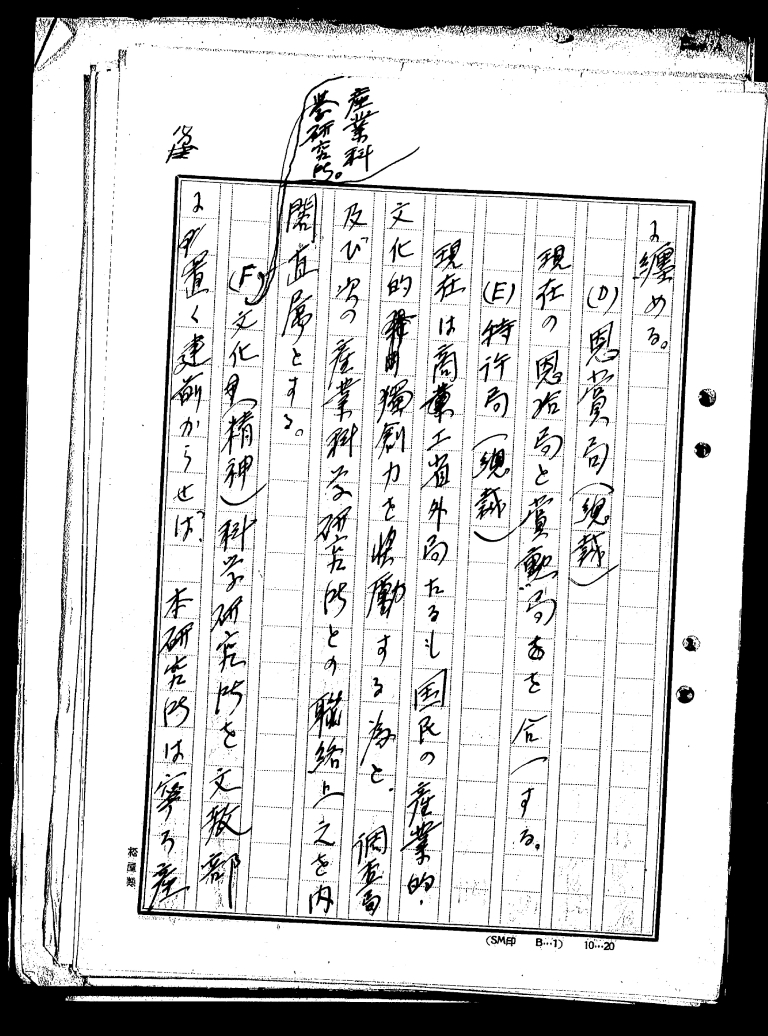 に纏める。
(D) 恩賞局(總裁)
現在の恩給局と賞勲局を合一する。
(E) 特許局(總裁)
現在は商工省外局たるも国民の産業的・
文化的獨創力を奨励する為と、調査局
及び次の産業科学研究所との聯絡上之を内
閣直属とする。
産業科
学研究所。
(F) 文化(精神)科学研究所を文教部
に置く建前からせば、本研究所は寧ろ産
(SM印 B…1) 10…20